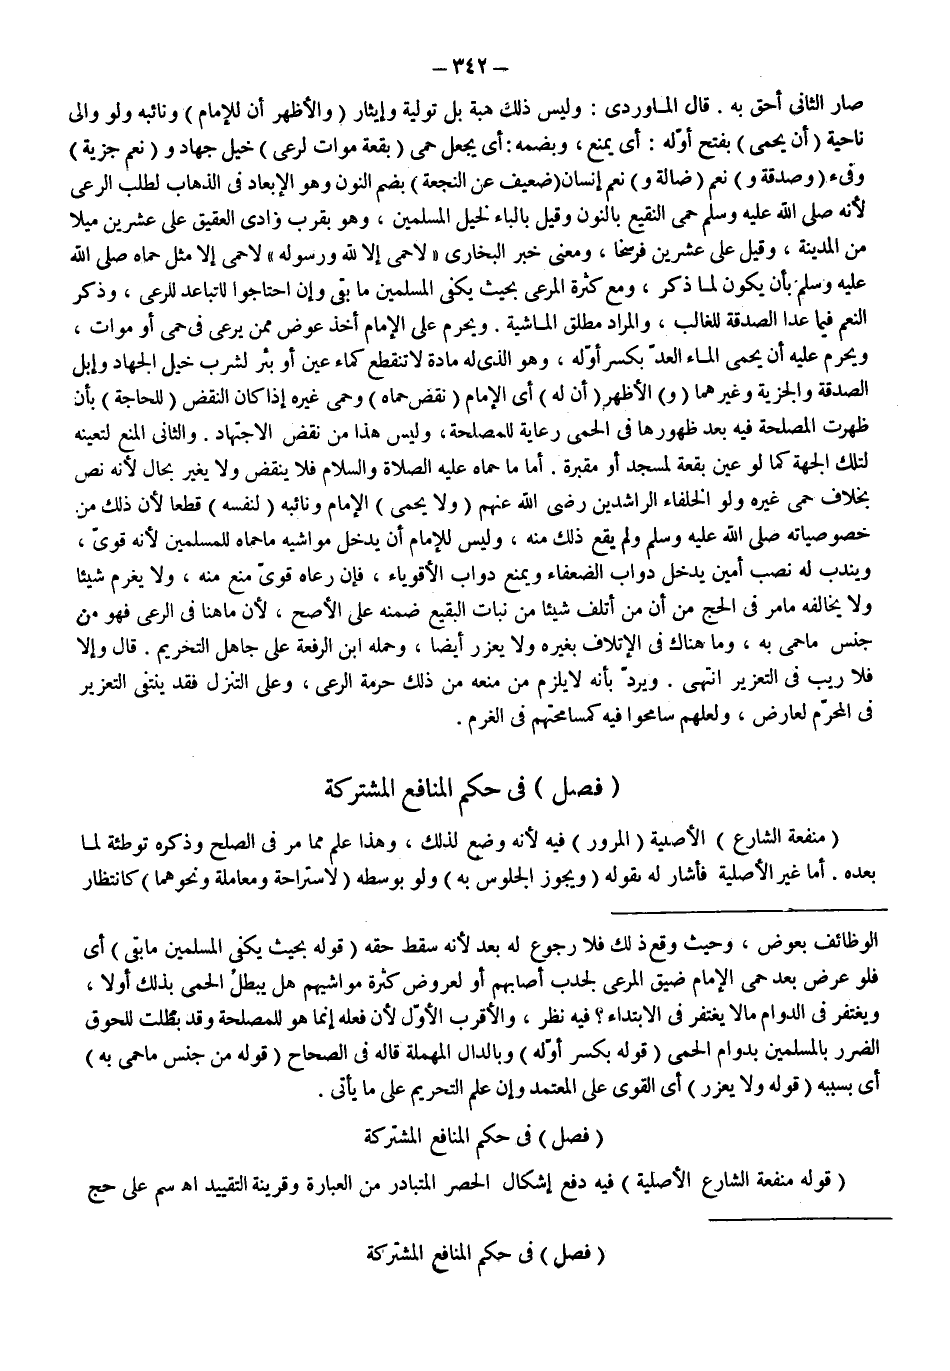 – ٣٤٢ –
صار الثانى أحق به . قال الماوردى : وليس ذلك هبة بل تولية وإيثار ( والأظهر أن للإمام ) ونائبه ولو والى
ناحية ( أن يحمى ) بفتح أوّله : أى يمنع ، وبضمه : أى يجعل حمى ( بقعة موات لرعى ) خيل جهاد و ( نعم جزية )
وفىء ( وصدقة و ) نعم ( ضالة و ) نعم إنسان ( ضعيف عن النجعة ) بضم النون وهو الإبعاد فى الذهاب لطلب الرعى
لأنه صلى الله عليه وسلم حمى النقيع بالنون وقيل بالباء لخيل المسلمين ، وهو بقرب وادى العقيق على عشرين ميلا
من المدينة ، وقيل على عشرين فرسخا ، ومعنى خبر البخارى « لاحمى إلا لله ورسوله » لاحمى إلا مثل حماه صلى الله
عليه وسلم بأن يكون لما ذكر ، ومع كثرة المرعى بحيث يكفى المسلمين ما بقى وإن احتاجوا لاتباعد للرعى ، وذكر
النعم فيما عدا الصدقة للغالب ، والمراد مطلق الماشية . ويحرم على الإمام أخذ عوض ممن يرعى فى حمى أو موات ،
ويحرم عليه أن يحمى الماء العدّ بكسر أوّله ، وهو الذى له مادة لاتنقطع كماء عين أو بئر لشرب خيل الجهاد وإبل
الصدقة والجزية وغيرهما ( و ) الأظهر ( أن له ) أى الإمام ( نقض حماه ) وحمى غيره إذا كان النقض ( للحاجة ) بأن
ظهرت المصلحة فيه بعد ظهورها فى الحمى رعاية للمصلحة ، وليس هذا من نقض الاجتهاد . والثانى المنع لتعينه
لتلك الجهة كما لو عين بقعة لمسجد أو مقبرة . أما ما حماه عليه الصلاة والسلام فلا ينقض ولا يغير بحال لأنه نص
بخلاف حمى غيره ولو الخلفاء الراشدين رضى الله عنهم ( ولا يحمى ) الإمام ونائبه ( لنفسه ) قطعا لأن ذلك من
خصوصياته صلى الله عليه وسلم ولم يقع ذلك منه ، وليس للإمام أن يدخل مواشيه ماحماه للمسلمين لأنه قوىّ ،
ويندب له نصب أمين يدخل دواب الضعفاء ويمنع دواب الأقوياء ، فإن رعاه قوىّ منع منه ، ولا يغرم شيئا
ولا يخالفه مامر فى الحج من أن من أتلف شيئا من نبات البقيع ضمنه على الأصح ، لأن ماهنا فى الرعى فهو من
جنس ماحمى به ، وما هناك فى الإتلاف بغيره ولا يعزر أيضا ، وحمله ابن الرفعة على جاهل التحريم . قال وإلا
فلا ريب فى التعزير انتهى . ويردّ بأنه لايلزم من منعه من ذلك حرمة الرعى ، وعلى التنزل فقد ينتفى التعزير
فى المحرّم لعارض ، ولعلهم سامحوا فيه كمسامحتهم فى الغرم .
( فصل ) فى حكم المنافع المشتركة
( منفعة الشارع ) الأصلية ( المرور ) فيه لأنه وضع لذلك ، وهذا علم مما مر فى الصلح وذكره توطئة لما
بعده . أما غير الأصلية فأشار له بقوله ( ويجوز الجلوس به ) ولو بوسطه ( لاستراحة ومعاملة ونحوهما ) كانتظار
الوظائف بعوض ، وحيث وقع ذلك فلا رجوع له بعد لأنه سقط حقه ( قوله بحيث يكفى المسلمين مابقى ) أى
فلو عرض بعد حمى الإمام ضيق المرعى لجدب أصابهم أو لعروض كثرة مواشيهم هل يبطل الحمى بذلك أولا ،
ويغتفر فى الدوام مالا يغتفر فى الابتداء ؟ فيه نظر ، والأقرب الأوّل لأن فعله إنما هو للمصلحة وقد بطلت للحوق
الضرر بالمسلمين بدوام الحمى ( قوله بكسر أوّله ) وبالدال المهملة قاله فى الصحاح ( قوله من جنس ماحمى به )
أى بسببه ( قوله ولا يعزر ) أى القوى على المعتمد وإن علم التحريم على ما يأتى .
( فصل ) فى حكم المنافع المشتركة
( قوله منفعة الشارع الأصلية ) فيه دفع إشكال الحصر المتبادر من العبارة وقرينة التقييد اه سم على حج
( فصل ) فى حكم المنافع المشتركة